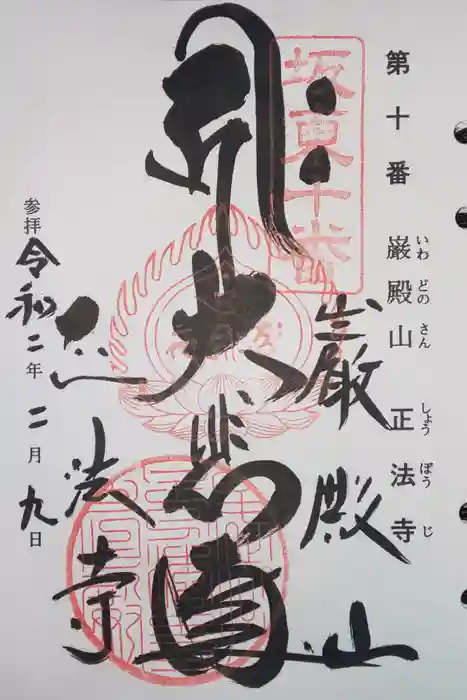 第十番 巌殿山 正法寺
いわ どの さん しょう ぼう じ
坂東十番
巌殿山
大悲殿
正法寺
参拝 令和二年 二月九日